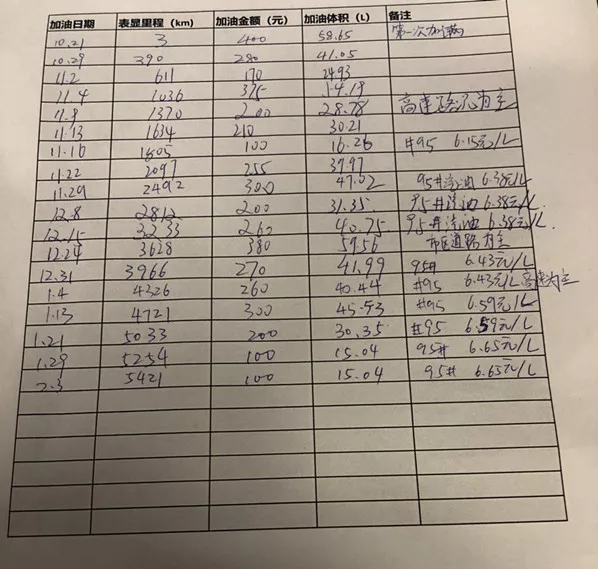 加油日期 表显里程（km） 加油金额（元） 加油体积（L） 备注
10.21 3 400 58.65 第一次加满
10.29 390 280 41.05
11.2 611 170 2493
11.4 1036 375
11.8 1370 200 28.78 高速路况为主
11.13 1634 210 30.21
11.16 1805 100 16.26 #95 6.15元/L
11.22 2097 255 37.97
11.29 2492 300 47.02 95#汽油 6.38元/L
12.8 2812 200 31.35 95#汽油 6.38元/L
12.15 3233 260 40.75 95#汽油 6.38元/L
12.24 3628 380 59.56 市区道路为主
12.31 3966 270 41.99 95# 6.43元/L
1.4 4326 260 40.44 #95 6.43元/L 高速为主
1.13 4721 300 45.53 #95 6.59元/L
1.21 5033 200 30.35 #95 6.59元/L
1.29 5254 100 15.04 95# 6.65元/L
2.3 5421 100 15.04 95# 6.65元/L